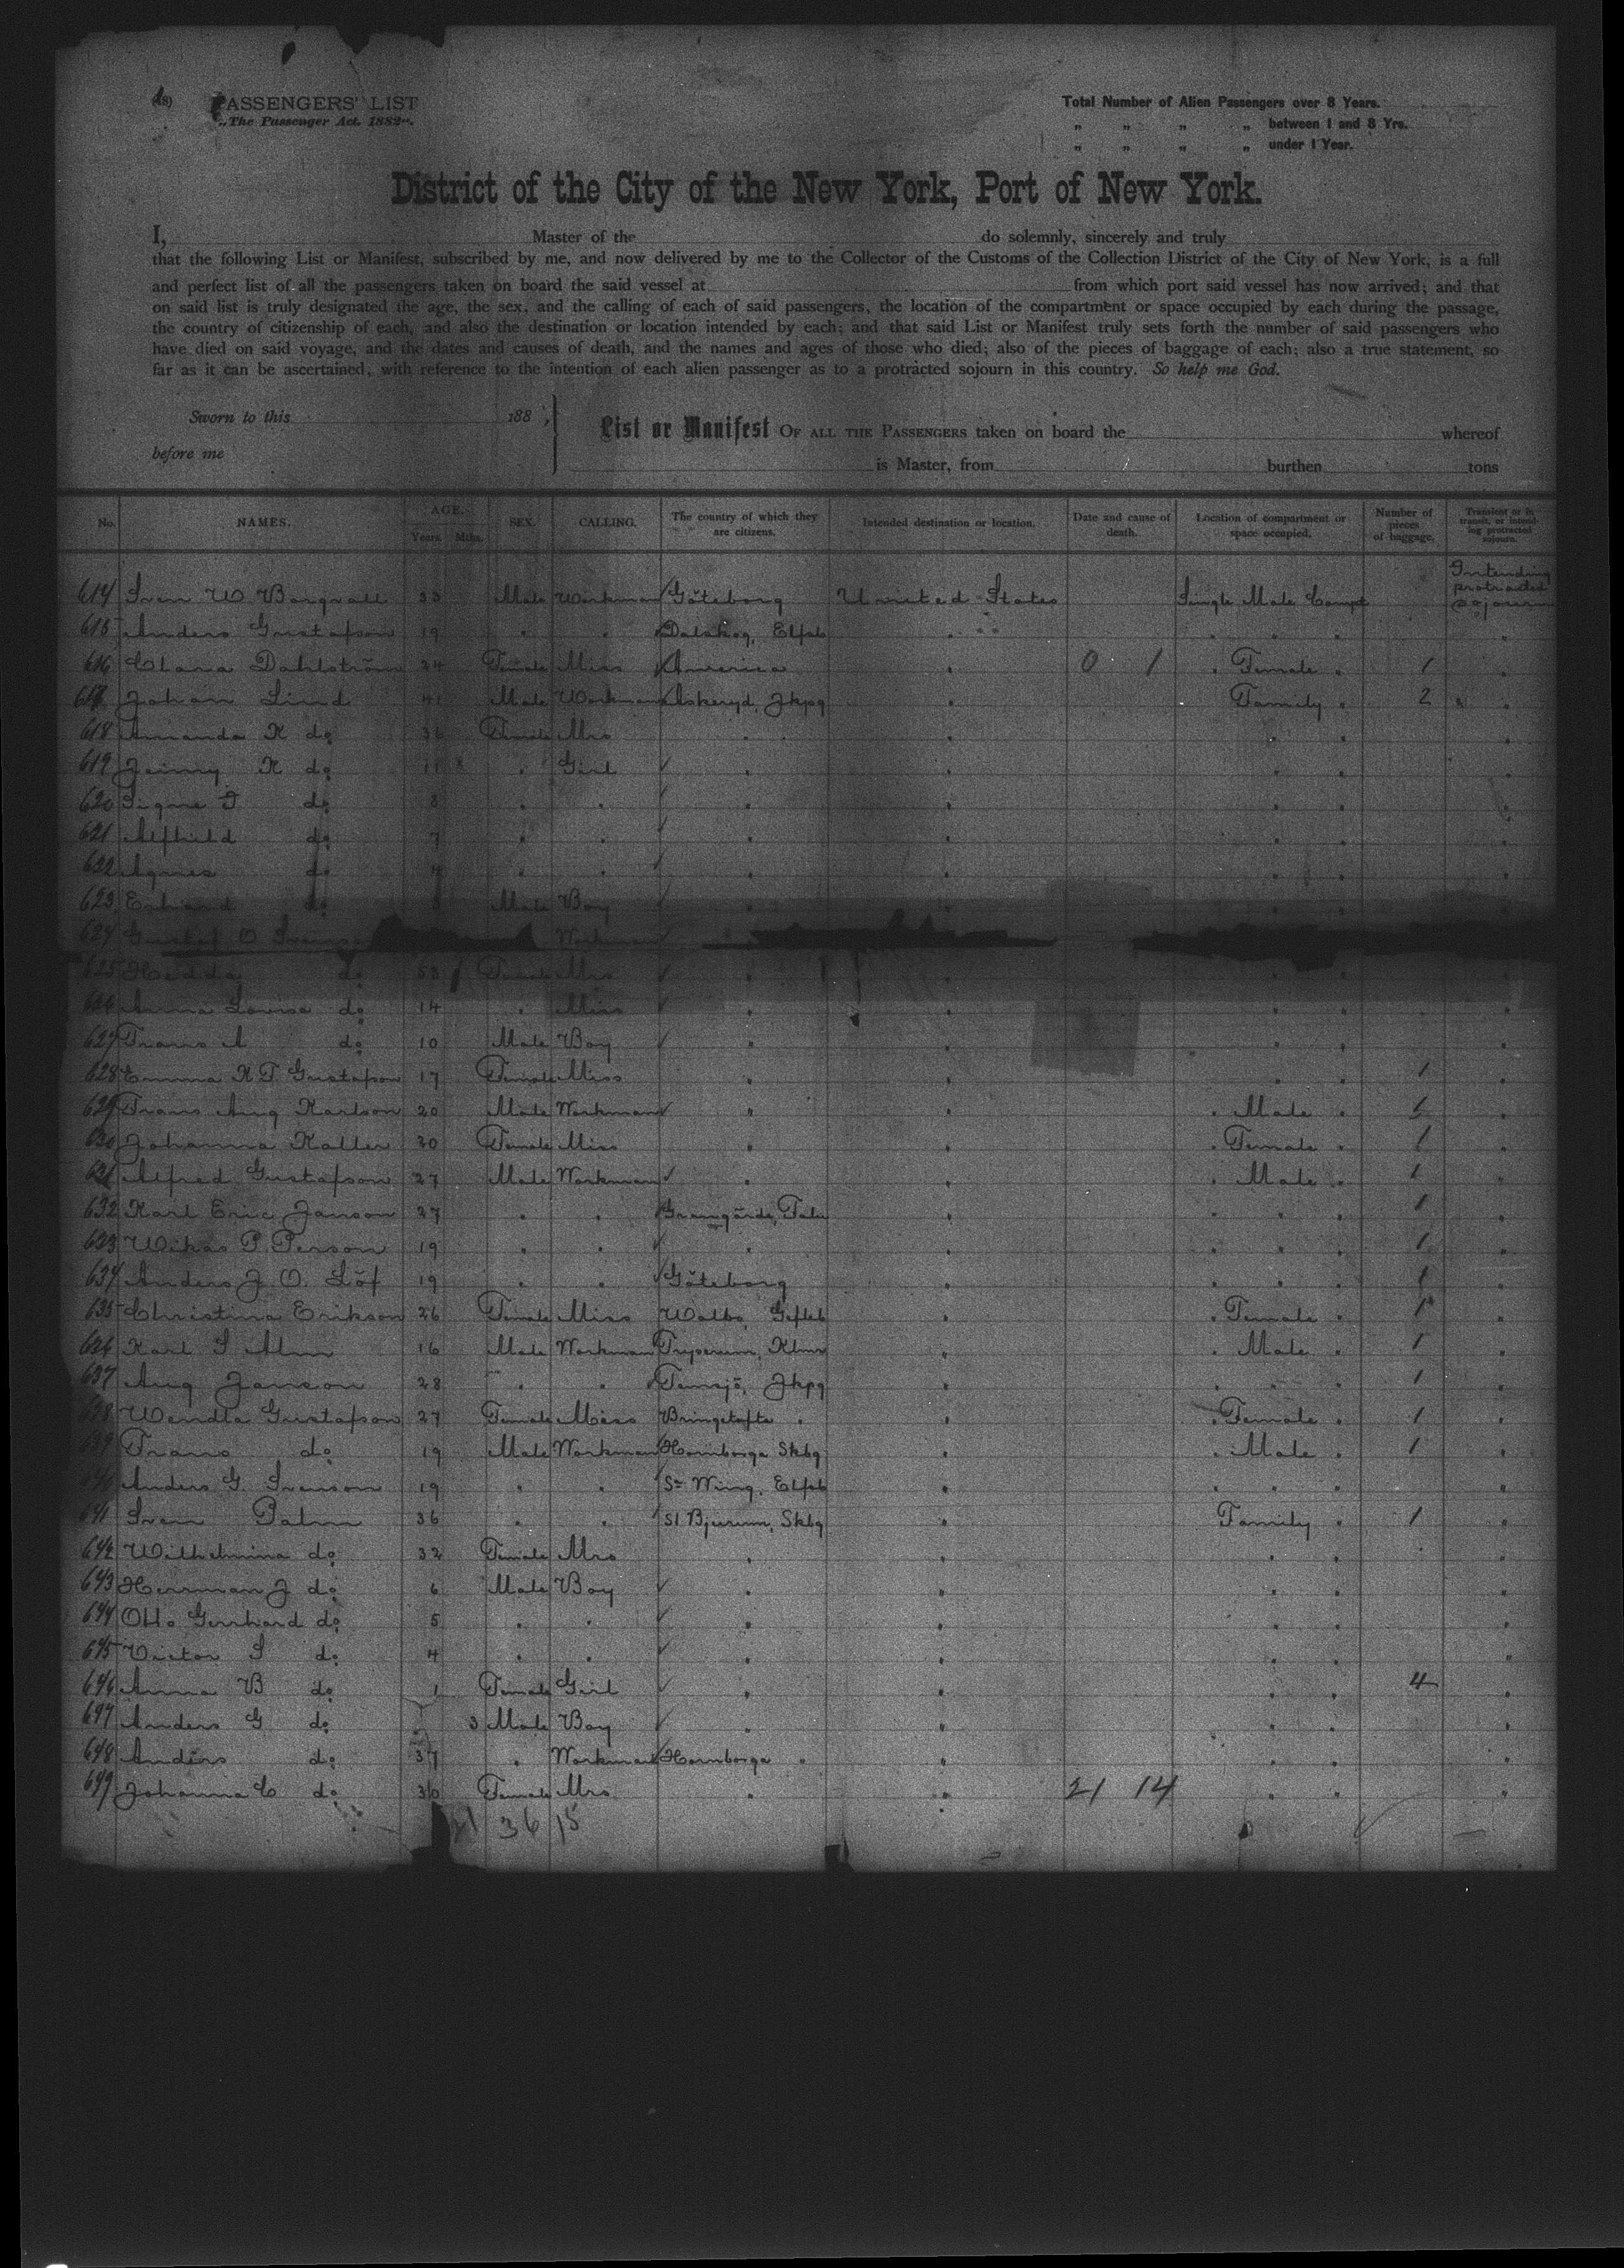 (48) PASSENGERS' LIST
„The Passenger Act. 1882“.
Total Number of Alien Passengers over 8 Years.
„ „ „ „ between 1 and 8 Yrs.
„ „ „ „ under 1 Year.
District of the City of the New York, Port of New York.
I, Master of the do solemnly, sincerely and truly
that the following List or Manifest, subscribed by me, and now delivered by me to the Collector of the Customs of the Collection District of the City of New York, is a full
and perfect list of all the passengers taken on board the said vessel at from which port said vessel has now arrived; and that
on said list is truly designated the age, the sex, and the calling of each of said passengers, the location of the compartment or space occupied by each during the passage,
the country of citizenship of each, and also the destination or location intended by each; and that said List or Manifest truly sets forth the number of said passengers who
have died on said voyage, and the dates and causes of death, and the names and ages of those who died; also of the pieces of baggage of each; also a true statement, so
far as it can be ascertained, with reference to the intention of each alien passenger as to a protracted sojourn in this country. So help me God.
Sworn to this 188 ,
before me
List or Manifest OF ALL THE PASSENGERS taken on board the whereof
is Master, from burthen tons
No. NAMES. AGE. Years. Mths. SEX. CALLING. The country of which they are citizens. Intended destination or location. Date and cause of death. Location of compartment or space occupied. Number of pieces of baggage. Transient or in transit, or intending protracted sojourn.
614 Sven W Bergvall 33 Male Workman Göteborg United States Single Male Compt Intending protracted sojourn
615 Anders Gustafson 19 " " Dalskog, Elfsb " " " " "
616 Clara Dahlström 24 Female Miss America " 0 1 " Female " 1 "
617 Johan Lind 41 Male Workman Askeryd, Jkpg " Family " 2 " "
618 Amanda K do 36 Female Mrs " " " " " "
619 Jenny K do 11 " Girl " " " " "
620 Signe do 8 " " " " " " "
621 Alfhild do 7 " " " " " " "
622 Agnes do 4 " " " " " " "
623 do Male Boy " " " " "
624 Gustaf O Workman
625 Hedda do 53 Female Mrs " " " " "
626 Anna Lovisa do 14 " Miss " " " " "
627 Frans A do 10 Male Boy " " " " "
628 Emma K T Gustafson 17 Female Miss " " " " 1 "
629 Frans Aug Karlson 20 Male Workman " " " Male " 1 "
630 Johanna Kaller 30 Female Miss " " " Female " 1 "
631 Alfred Gustafson 27 Male Workman " " " Male " 1 "
632 Karl Eric Janson 27 " " Grangärde, Falu " " " " 1 "
633 P. Person 19 " " " " " " " 1 "
634 Anders J. O. Löf 19 " " Göteborg " " " " 1 "
635 Christina Erikson 26 Female Miss Walbo, Gefleb " " Female " 1 "
636 Karl S Alm 16 Male Workman Tryserum, Klmr " " Male " 1 "
637 Aug Janson 28 " " Jkpg " " " " 1 "
638 Wendla Gustafson 27 Female Miss Bringetofta " " " Female " 1 "
639 Frans do 19 Male Workman Hornborga Skbg " " Male " 1 "
640 Anders G. Svenson 19 " " Sn Wing, Elfsb " " " " "
641 Sven Palm 36 " " St Bjurum, Skbg " Family " 1 "
642 Wilhelmina do 32 Female Mrs " " " " "
643 Herrman J do 6 Male Boy " " " " "
644 Otto Gerrhard do 5 " " " " " " "
645 Victor S do 4 " " " " " " "
646 Anna B do 1 Female Girl " " " " 4 "
647 Anders G do 3 Male Boy " " " " "
648 Anders do 37 " Workman Hornborga " " " " "
649 Johanna C do 30 Female Mrs " " 21 14 " " "
21 36 15